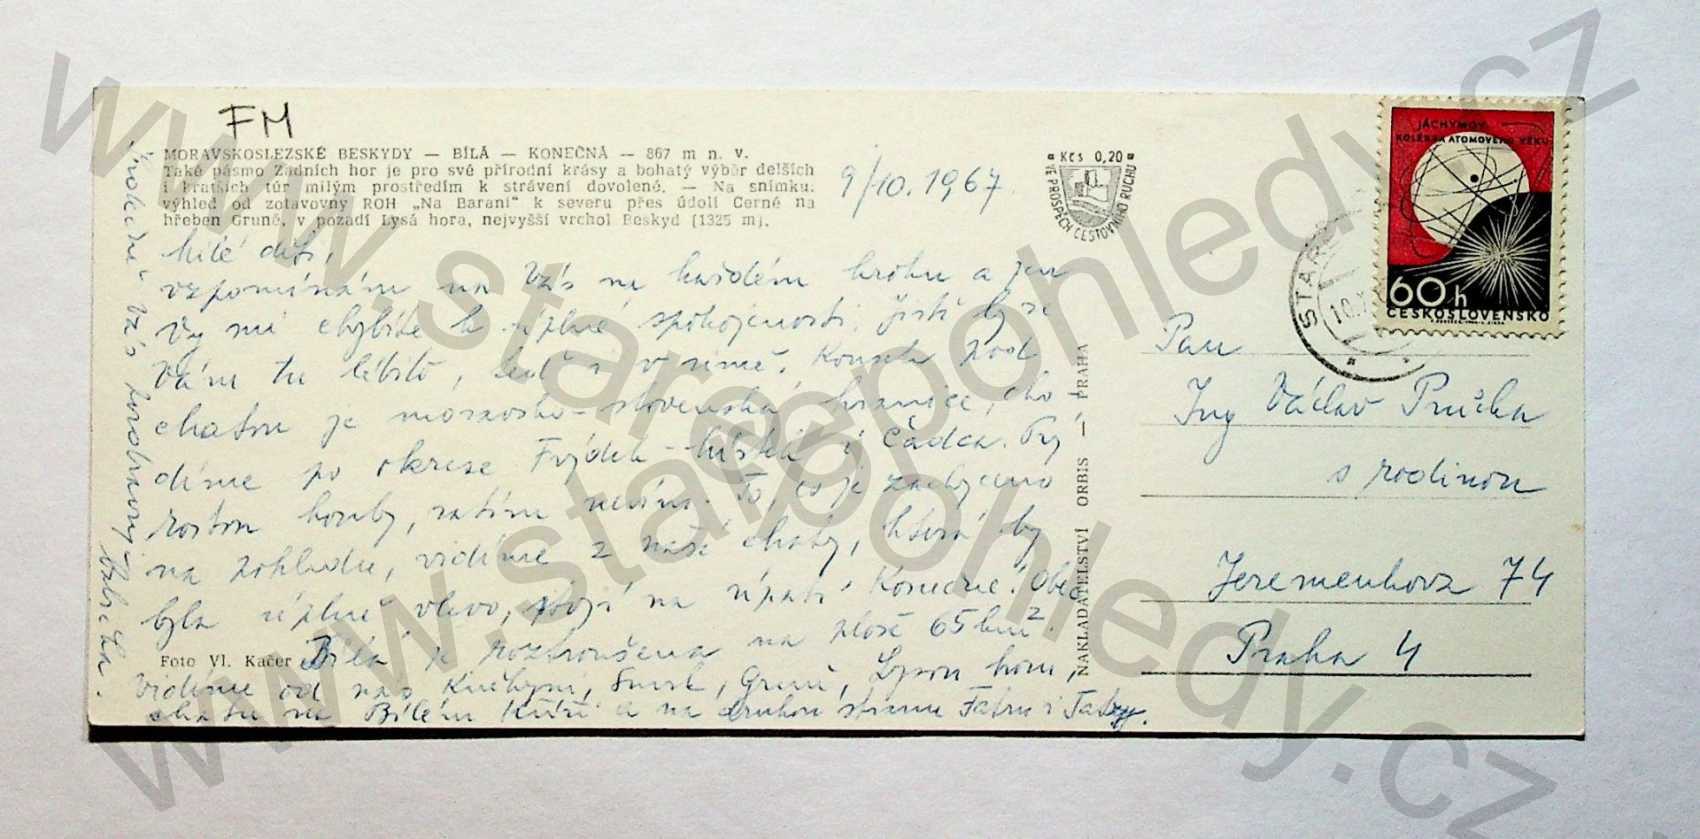 FM
MORAVSKOSLEZSKÉ BESKYDY — BÍLÁ — KONEČNÁ — 867 m n. v.
Také pásmo Zadních hor je pro své přírodní krásy a bohatý výběr delších
i kratších túr milým prostředím k strávení dovolené. — Na snímku:
výhled od zotavovny ROH „Na Baraní" k severu přes údolí Černé na
hřeben Gruně, v pozadí Lysá hora, nejvyšší vrchol Beskyd (1325 m).
9/10. 1967
Kčs 0,20
VE PROSPĚCH CESTOVNÍHO RUCHU
JÁCHYMOV
KOLÉBKA ATOMOVÉHO VĚKU
60 h
ČESKOSLOVENSKO
STAR
10.X
Milé děti,
vzpomínám na Vás na každém kroku a jen
Vy mi chybíte k úplné spokojenosti. Jistě by se
Vám tu líbilo, teď i v zimě. Kousek pod
chatou je moravsko-slovenská hranice, cho-
díme po okrese Frýdek-Místek i Čadca. Prý
rostou houby, zatím nevím. To, co je zachyceno
na pohledu, vidíme z naší chaty, která by
byla úplně vlevo, stojí na úpatí Konečné. Obec
Bílá je rozkroušena na ploše 65 km².
Vidíme od nás Kněhyni, Smrk, Gruň, Lysou horu,
chatu na Bílém Kříži a na druhou stranu Fatru i Tatry.
Srdečně Vás pozdravuje
Foto Vl. Kačer
NAKLADATELSTVÍ ORBIS — PRAHA
Pan
Ing Václav Pručka
s rodinou
Jeremenkova 74
Praha 4
www.starepohledy.cz
www.starepohledy.cz